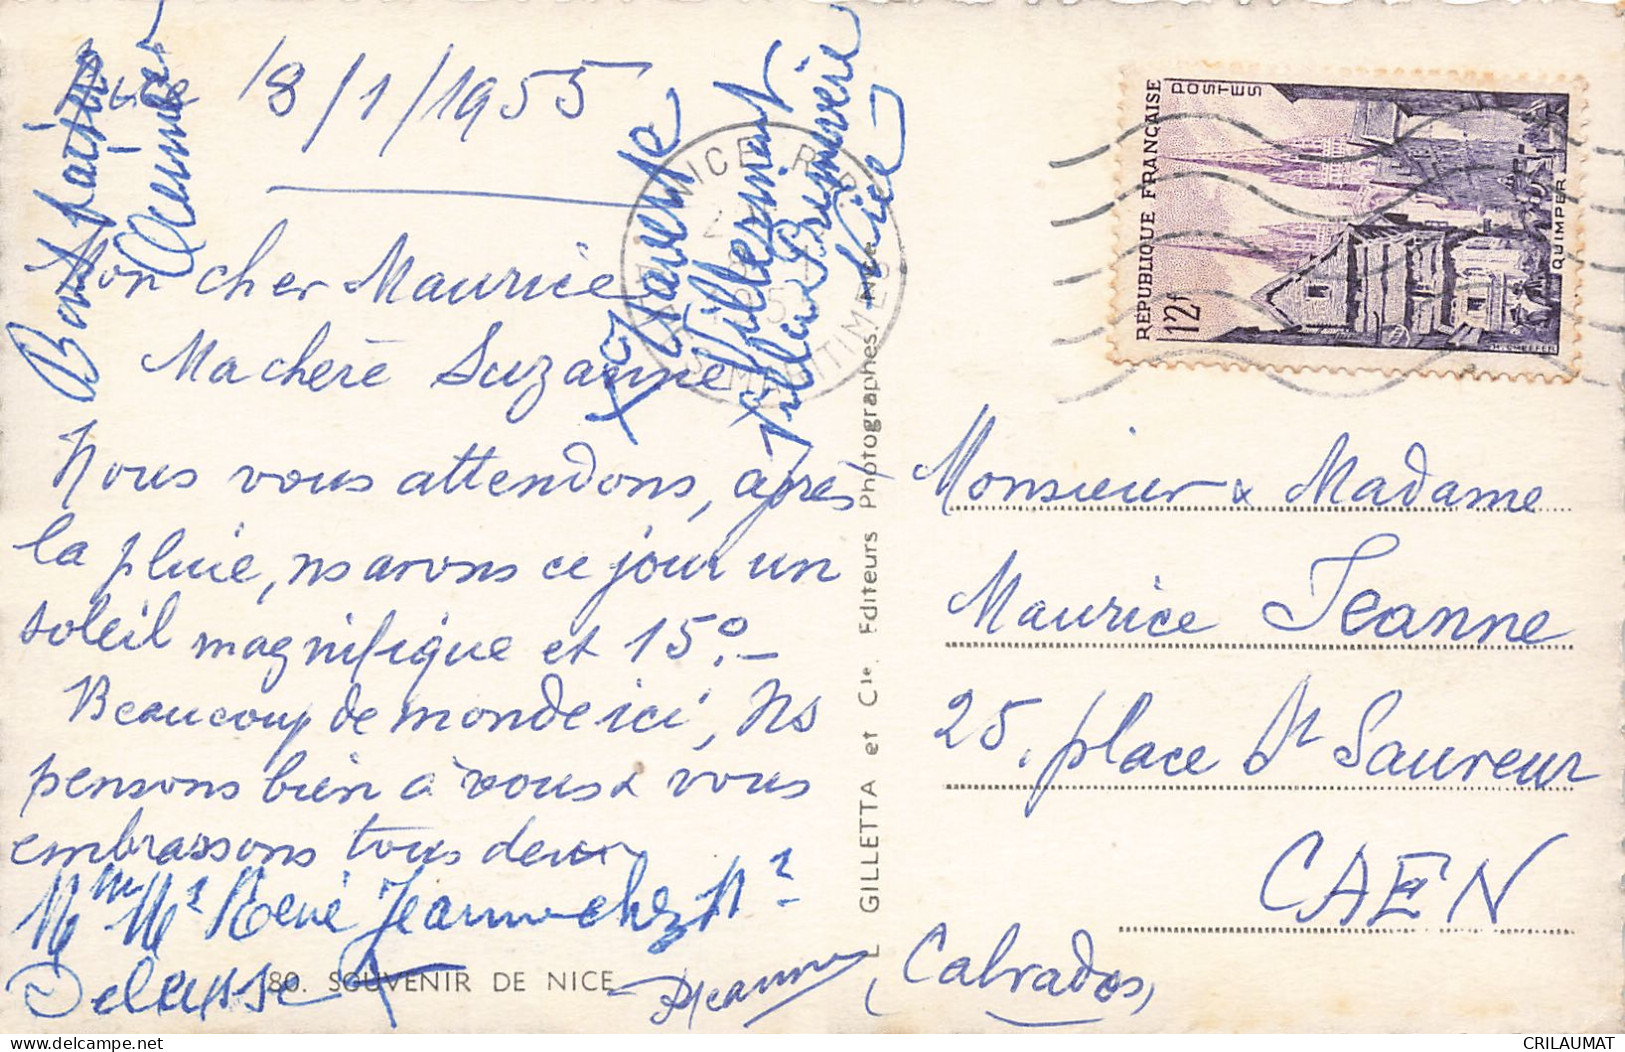 Nice 18/1/1955
Mon cher Maurice
Ma chère Suzanne
Nous vous attendons, après
la pluie, ns avons ce jour un
soleil magnifique et 15°.–
Beaucoup de monde ici, Ns
pensons bien à vous & vous
embrassons tous deux
Mme Mr René Jeanne chez Mr
Delaysse
RJeanne
Bons baisers
Villa Primevère
Nice
80. SOUVENIR DE NICE
L. GILLETTA et Cie. Editeurs Photographes Nice
NICE R.P.
MARITIMES
RÉPUBLIQUE FRANÇAISE
POSTES
12f
QUIMPER
Monsieur & Madame
Maurice Jeanne
25, place St Sauveur
CAEN
(Calvados)
CRILAUMAT